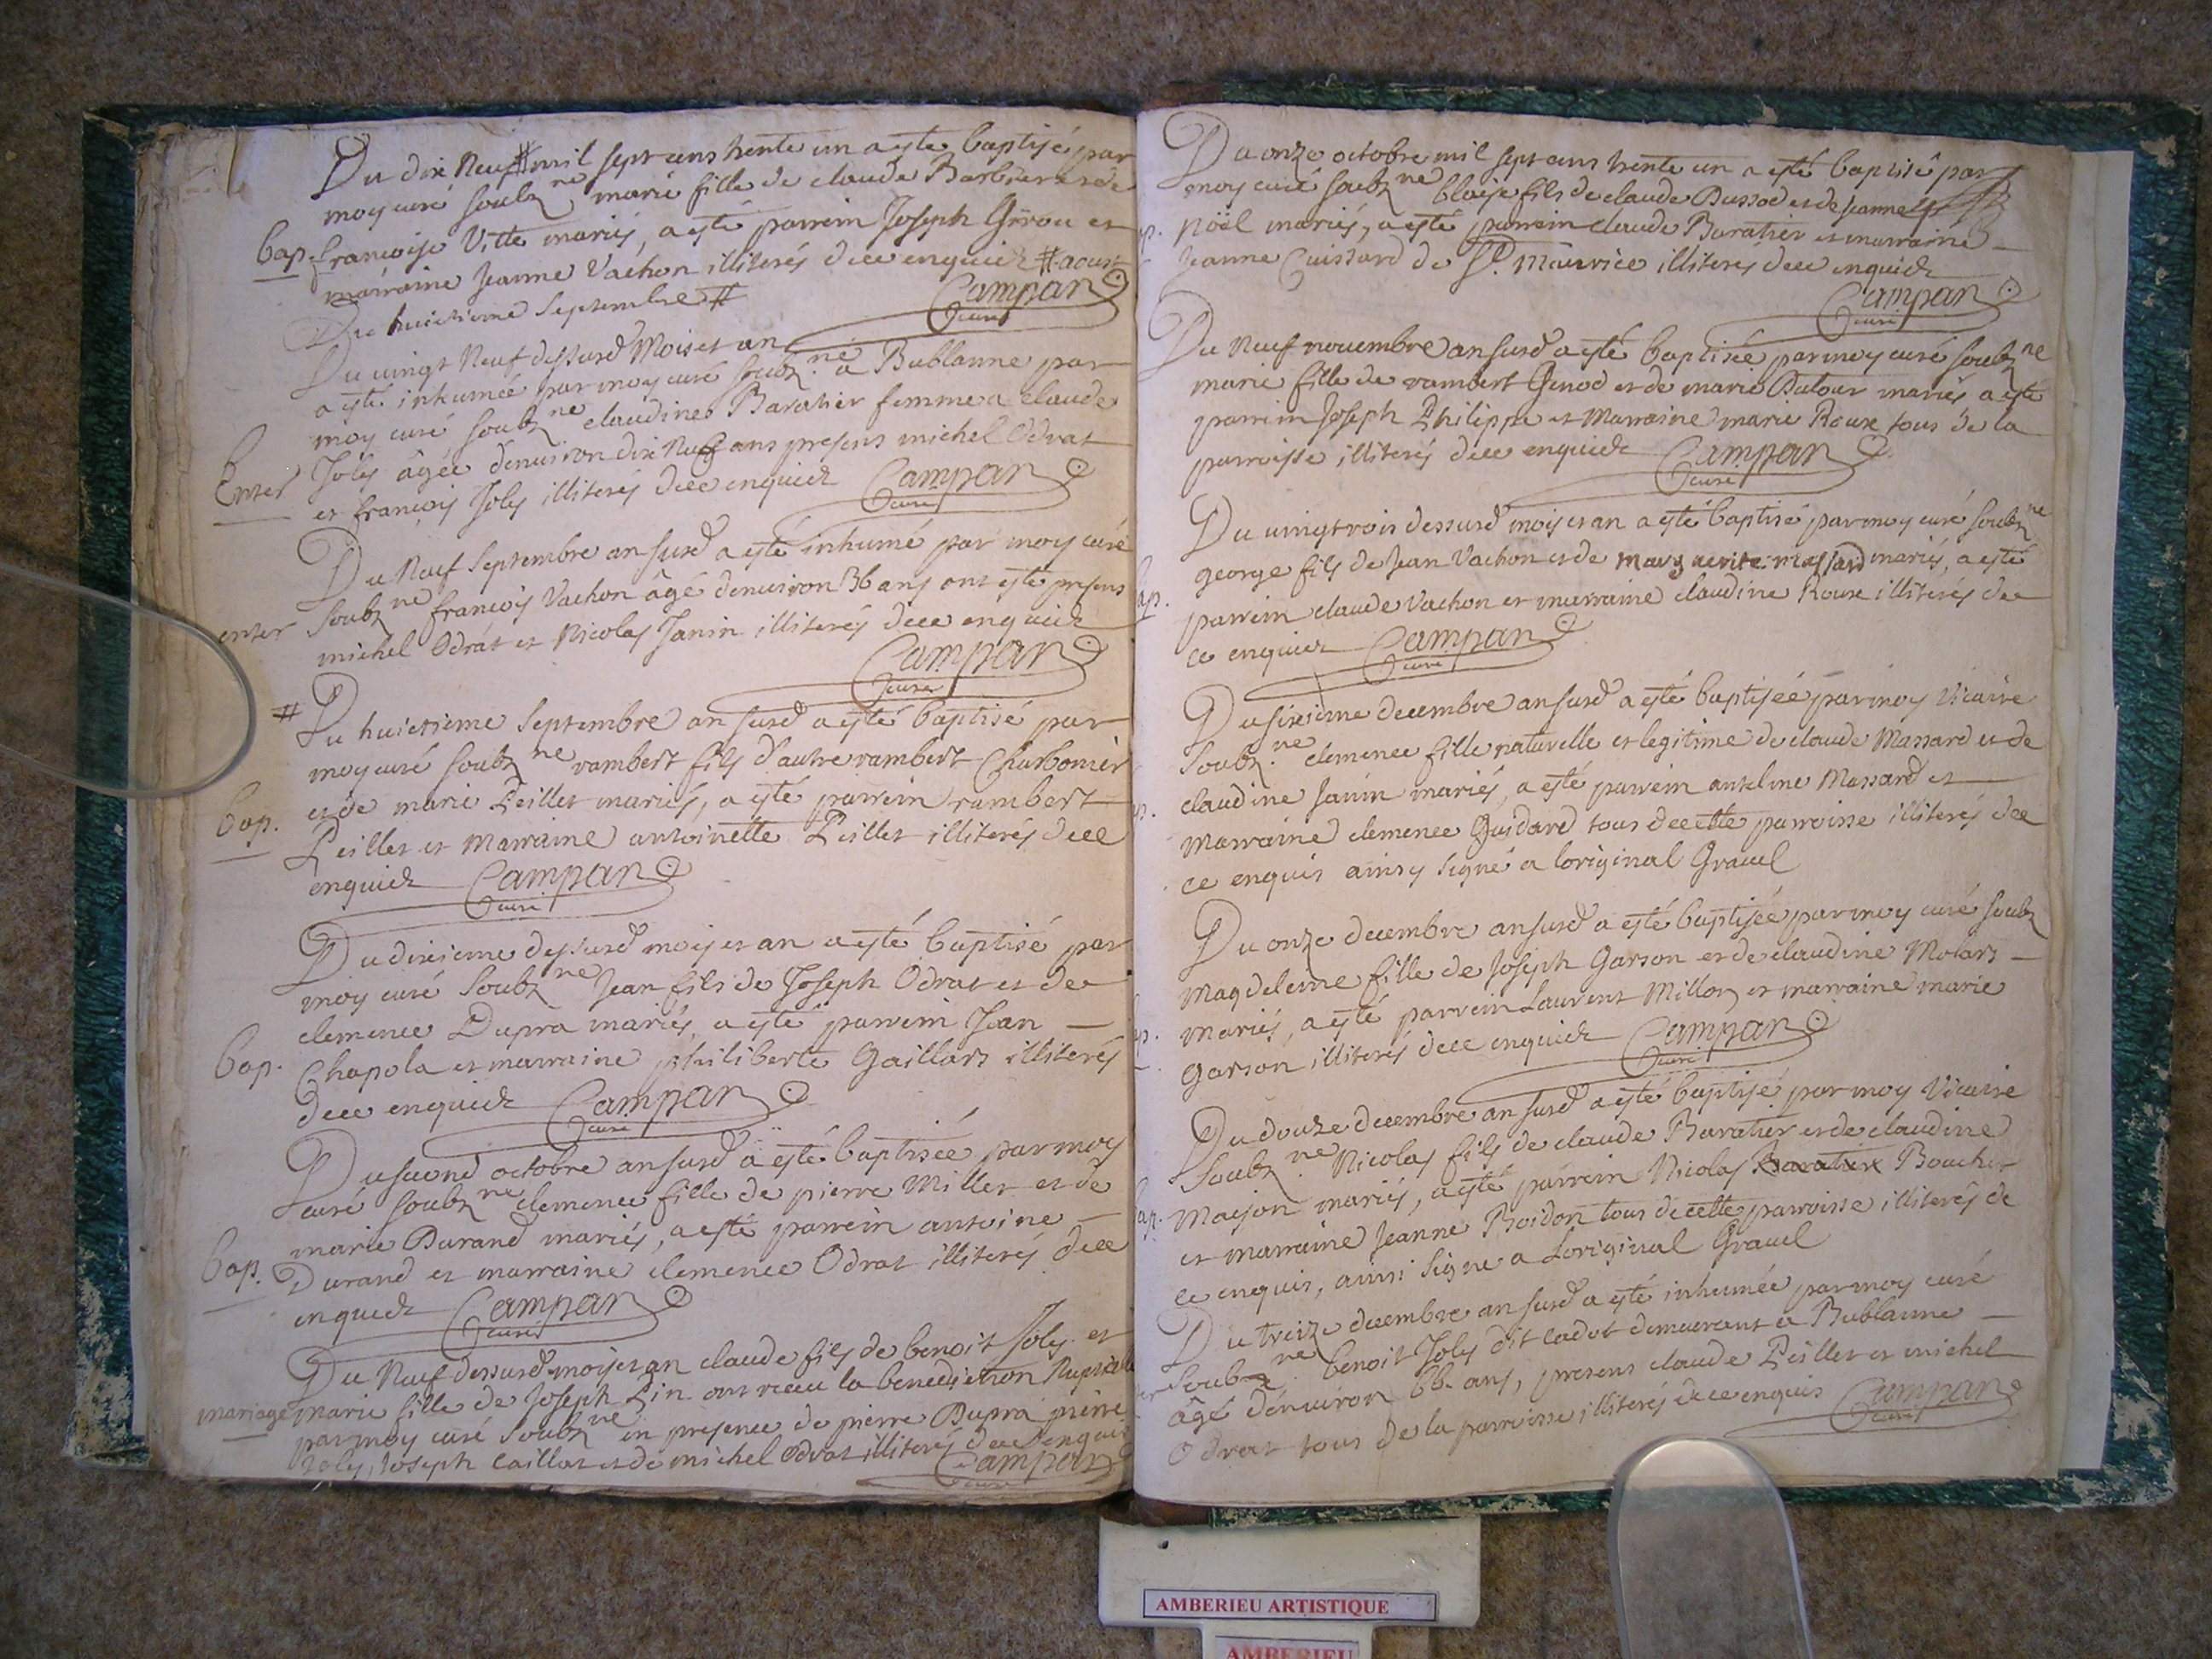 Du dix Neuf # mil sept cens trente un a esté baptisé par
moy curé soubz ne marie fille de claude Barbier et de
Bap. francoise Vitte mariés, a esté parrein Joseph Girou et
marraine Jeanne Vachon illiterés dece enquick # aoust
Du huictieme Septembre #
Campan
curé
Du vingt Neuf dessusd Mois et an
a esté inhumée par moy curé soubz ne a Bublanne par
moy curé soubz ne claudine Baratier femme a claude
Enter Joly âgée denuiron dix Neuf ans presens michel Odrat
et francois Joly illiterés dece enquick Campan
curé
Du Neuf Septembre an susd a esté inhumé par moy curé
Soubz ne francois Vachon âgé denuiron 36 ans ont esté presens
enter michel Odrat et Nicolas Janin illiterés dece enquick
Campan
curé
# Du huictieme Septembre an susd a esté baptisé par
moy curé soubz ne rambert fils d'autre rambert Charbonier
et de marie Peillet mariés, a esté parrein rambert
Bap. Peillet et Marraine antoinette Peillet illiterés dece
enquick Campan
curé
Du dixieme dessusd mois et an a esté baptisé par
moy curé Soubz ne Jean fils de Joseph Odrat et de
clemence Dupra mariés, a esté parrein Jean
Bap. Chapola et marraine philiberte Gaillars illiterés
dece enquick Campan
curé
Du second octobre an susd a esté baptisée par moy
curé soubz ne clemence fille de pierre Millet et de
marie Durand mariés, a esté parrein antoine
Bap. Durand et marraine clemence Odrat illiterés dece
enquick Campan
curé
Du Neuf dessusd mois et an claude fils de benoit Joly et
mariage marie fille de Joseph Pin ont receu la benediction Nuptiale
par moy curé Soubz ne in presence de pierre Dupra pierre
Joly, Joseph Caillat et de michel Odrat illiterés dece enquis
Campan
curé
Du onze octobre mil sept cens trente un a esté baptisé par
moy curé soubz ne blaise fils de claude Bussod et de Jeanne
Noël mariés, a esté parrein claude Baratier et marraine
Jeanne Cuissard de St. Maurice illiterés dece enquick
Campan
curé
Du Neuf novembre an susd a esté baptisée par moy curé soubz ne
marie fille de rambert Genod et de marie Dutour mariés a esté
parrein Joseph Philippe et Marraine marie Roux tous de la
parroisse illiterés dece enquick Campan
curé
Du vingtrois dessusd mois et an a esté baptisé par moy curé soubz ne
george fils de Jean Vachon et de marguerite massard mariés, a esté
parrein claude Vachon et marraine claudine Roux illiterés de
ce enquick Campan
curé
Du sixieme decembre an susd a esté baptisée par moy Vicaire
Soubz ne clemence fille naturelle et legitime de claude Massard et de
claudine Janin mariés, a esté parrein anselme Massard et
Marraine clemence Guidard tous decette parroisse illiterés de
ce enquis ainsy signé a loriginal Gravel
Du onze decembre an susd a esté baptisée par moy curé soubz
Magdeleine fille de Joseph Garson et de claudine Molars
mariés, a esté parrein Laurent Millon et marraine marie
Garson illiterés dece enquick Campan
curé
Du douze decembre an susd a esté baptisé par moy Vicaire
Soubz ne Nicolas fils de claude Baratier et de claudine
Maison mariés, a esté parrein Nicolas Baratier Boucher
et marraine Jeanne Boidon tous decette parroisse illiterés de
ce enquis, ainsi signe a Loriginal Gravel
Du treize decembre an susd a esté inhumée par moy curé
Soubz ne benoit Joly dit cadot demeurant a Bublanne
âgé dénviron 66 ans, presens claude Peillet et michel
Odrat tous de la parroisse illiterés dece enquis Campan
curé
AMBERIEU ARTISTIQUE
AMBERIEU